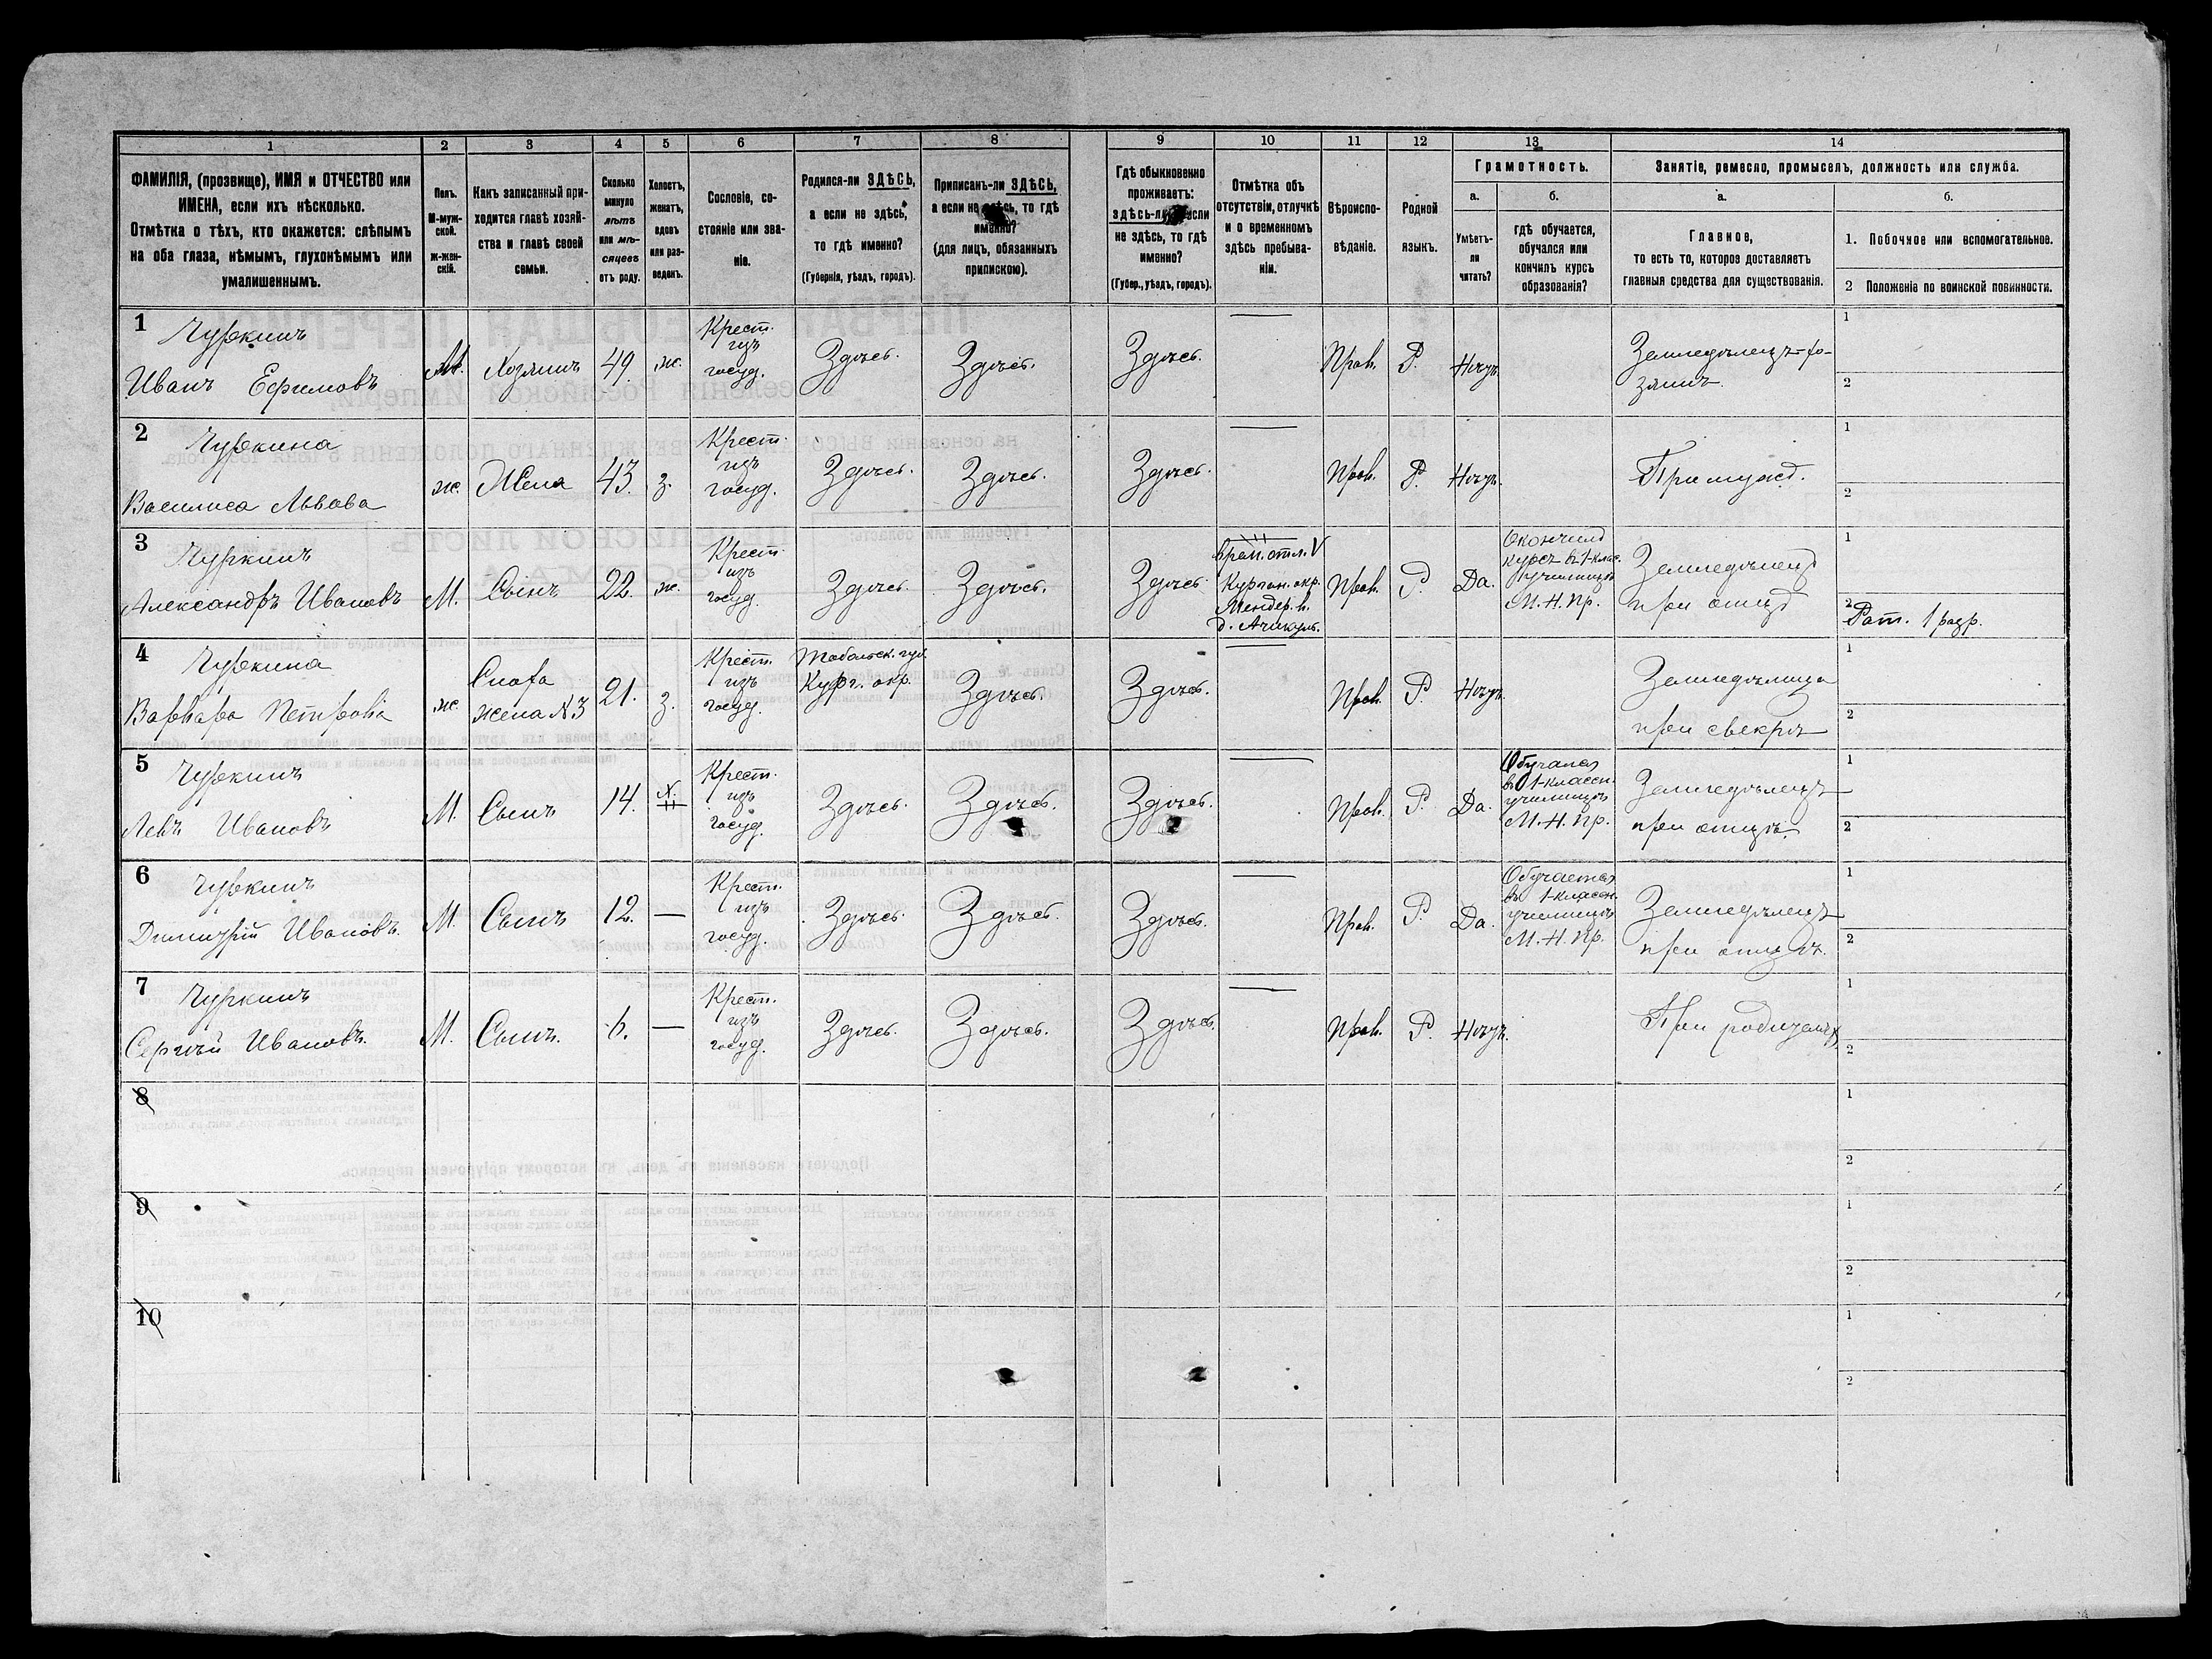 1 2 3 4 5 6 7 8 9 10 11 12 13 14
ФАМИЛІЯ, (прозвище), ИМЯ и ОТЧЕСТВО или
ИМЕНА, если ихъ нѣсколько.
Отмѣтка о тѣхъ, кто окажется: слѣпымъ
на оба глаза, нѣмымъ, глухонѣмымъ или
умалишеннымъ.
Полъ.
М-муж-
ской.
Ж-жен-
скій.
Какъ записанный при-
ходится главѣ хозяй-
ства и главѣ своей
семьи.
Сколько
минуло
лѣтъ
или мѣ-
сяцевъ
отъ роду.
Холостъ,
женатъ,
вдовъ
или раз-
веденъ.
Сословіе, со-
стояніе или зва-
ніе.
Родился-ли ЗДѢСЬ,
а если не здѣсь,
то гдѣ именно?
(Губернія, уѣздъ, городъ).
Приписанъ-ли ЗДѢСЬ,
а если не здѣсь, то гдѣ
именно?
(для лицъ, обязанныхъ
припискою).
Гдѣ обыкновенно
проживаетъ:
здѣсь-ли если
не здѣсь, то гдѣ
именно?
(Губер., уѣздъ, городъ).
Отмѣтка объ
отсутствіи, отлучкѣ
и о временномъ
здѣсь пребыва-
ніи.
Вѣроиспо-
вѣданіе.
Родной
языкъ.
Грамотность.
а.
Умѣетъ-
ли
читать?
б.
гдѣ обучается,
обучался или
кончилъ курсъ
образованія?
Занятіе, ремесло, промыселъ, должность или служба.
а.
Главное,
то есть то, которое доставляетъ
главныя средства для существованія.
б.
1. Побочное или вспомогательное.
2 Положеніе по воинской повинности.
1 Чуркинъ
Иванъ Ефимовъ
М.
Хозяинъ
49
ж.
Крест.
изъ
госуд.
Здѣсь.
Здѣсь.
Здѣсь.
—
Прав.
Р.
Нѣтъ
Земледѣлецъ-хо-
зяинъ
1
2
2 Чуркина
Василиса Львова
ж.
Жена
43.
з.
Крест.
изъ
госуд.
Здѣсь.
Здѣсь.
Здѣсь.
—
Прав.
Р.
Нѣтъ
При мужѣ.
1
2
3 Чуркинъ
Александръ Ивановъ
М.
Сынъ
22.
ж.
Крест.
изъ
госуд.
Здѣсь.
Здѣсь.
Здѣсь
Врем. отл. V
Курган. окр.
Мендер. в.
д. Ачикуль.
Прав.
Р.
Да.
Окончилъ
курсъ въ 1-клас.
училищѣ
М. Н. Пр.
Земледѣлецъ
при отцѣ
1
2
Рат. 1 разр.
4 Чуркина
Варвара Петрова
ж.
Сноха
жена №3
21.
з.
Крест.
изъ
госуд.
Тобольск. губ.
Кург. окр.
Здѣсь.
Здѣсь.
—
Прав.
Р.
Нѣтъ
Земледѣлица
при свекрѣ
1
2
5 Чуркинъ
Левъ Ивановъ
М.
Сынъ
14.
х.
Крест.
изъ
госуд.
Здѣсь.
Здѣсь.
Здѣсь.
—
Прав.
Р.
Да.
Обучался
въ 1-классн.
училищѣ
М. Н. Пр.
Земледѣлецъ
при отцѣ.
1
2
6 Чуркинъ
Димитрій Ивановъ.
М.
Сынъ
12.
—
Крест.
изъ
госуд.
Здѣсь.
Здѣсь.
Здѣсь.
—
Прав.
Р.
Да.
Обучается
въ 1-классн.
училищѣ
М. Н. Пр.
Земледѣлецъ
при отцѣ.
1
2
7 Чуркинъ
Сергѣй Ивановъ.
М.
Сынъ.
6.
—
Крест.
изъ
госуд.
Здѣсь.
Здѣсь.
Здѣсь.
—
Прав.
Р.
Нѣтъ.
При родителяхъ
1
2
8
1
2
9
1
2
10
1
2